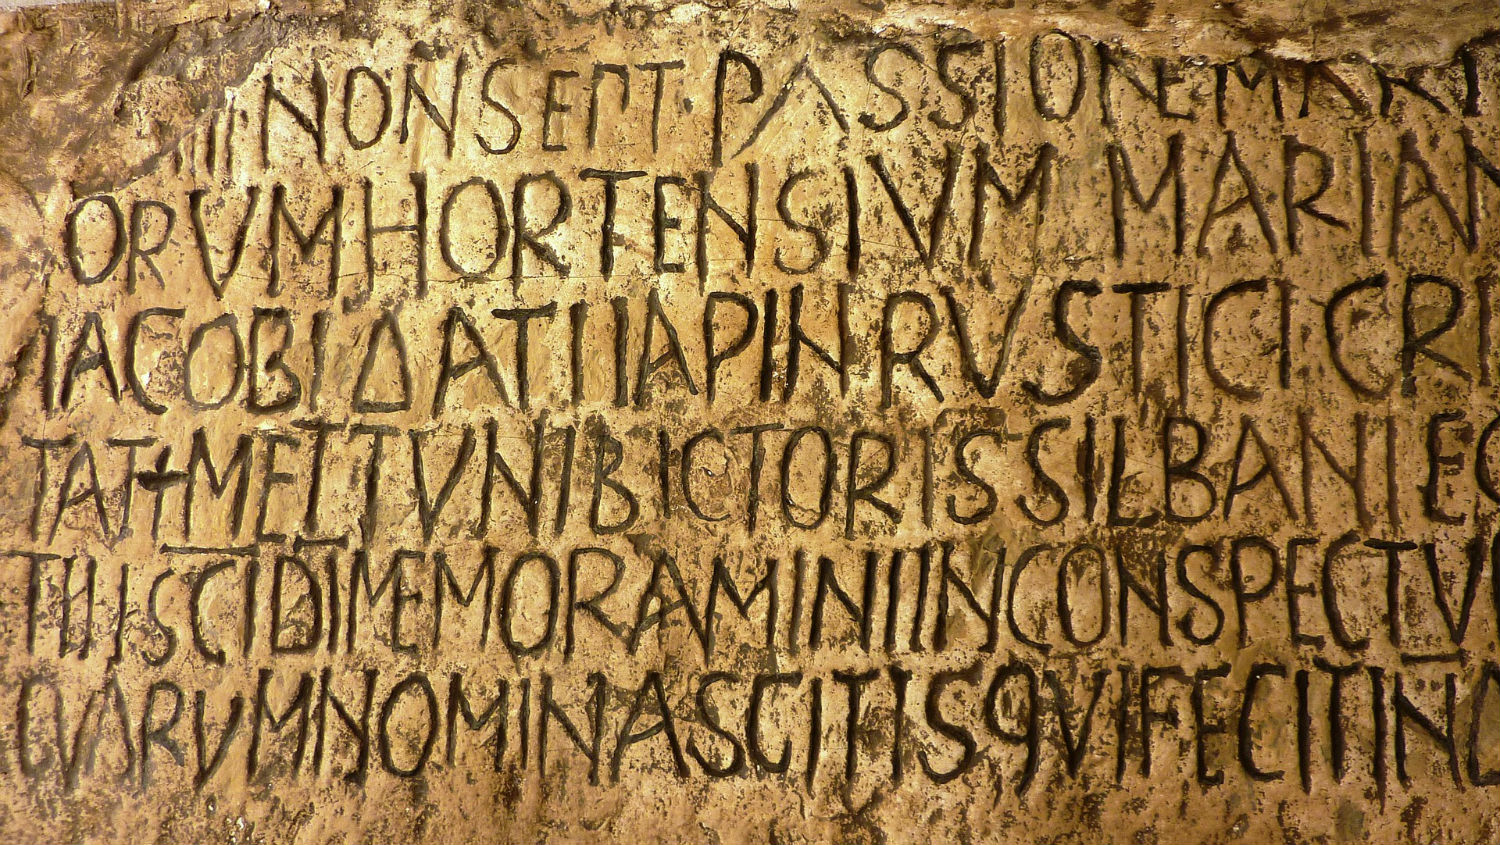 III NON SEPT. PASSIO NE MARTI
ORUM HORTENSIUM MARIAN
IACOBI DATI IAPIN RUSTICI CRI
TATI METTUNI BICTORIS SILBANI EG
TII SCI DI MEMORAMINI IN CONSPECTU
QUORUM NOMINA SCIT IS QUI FECIT IN